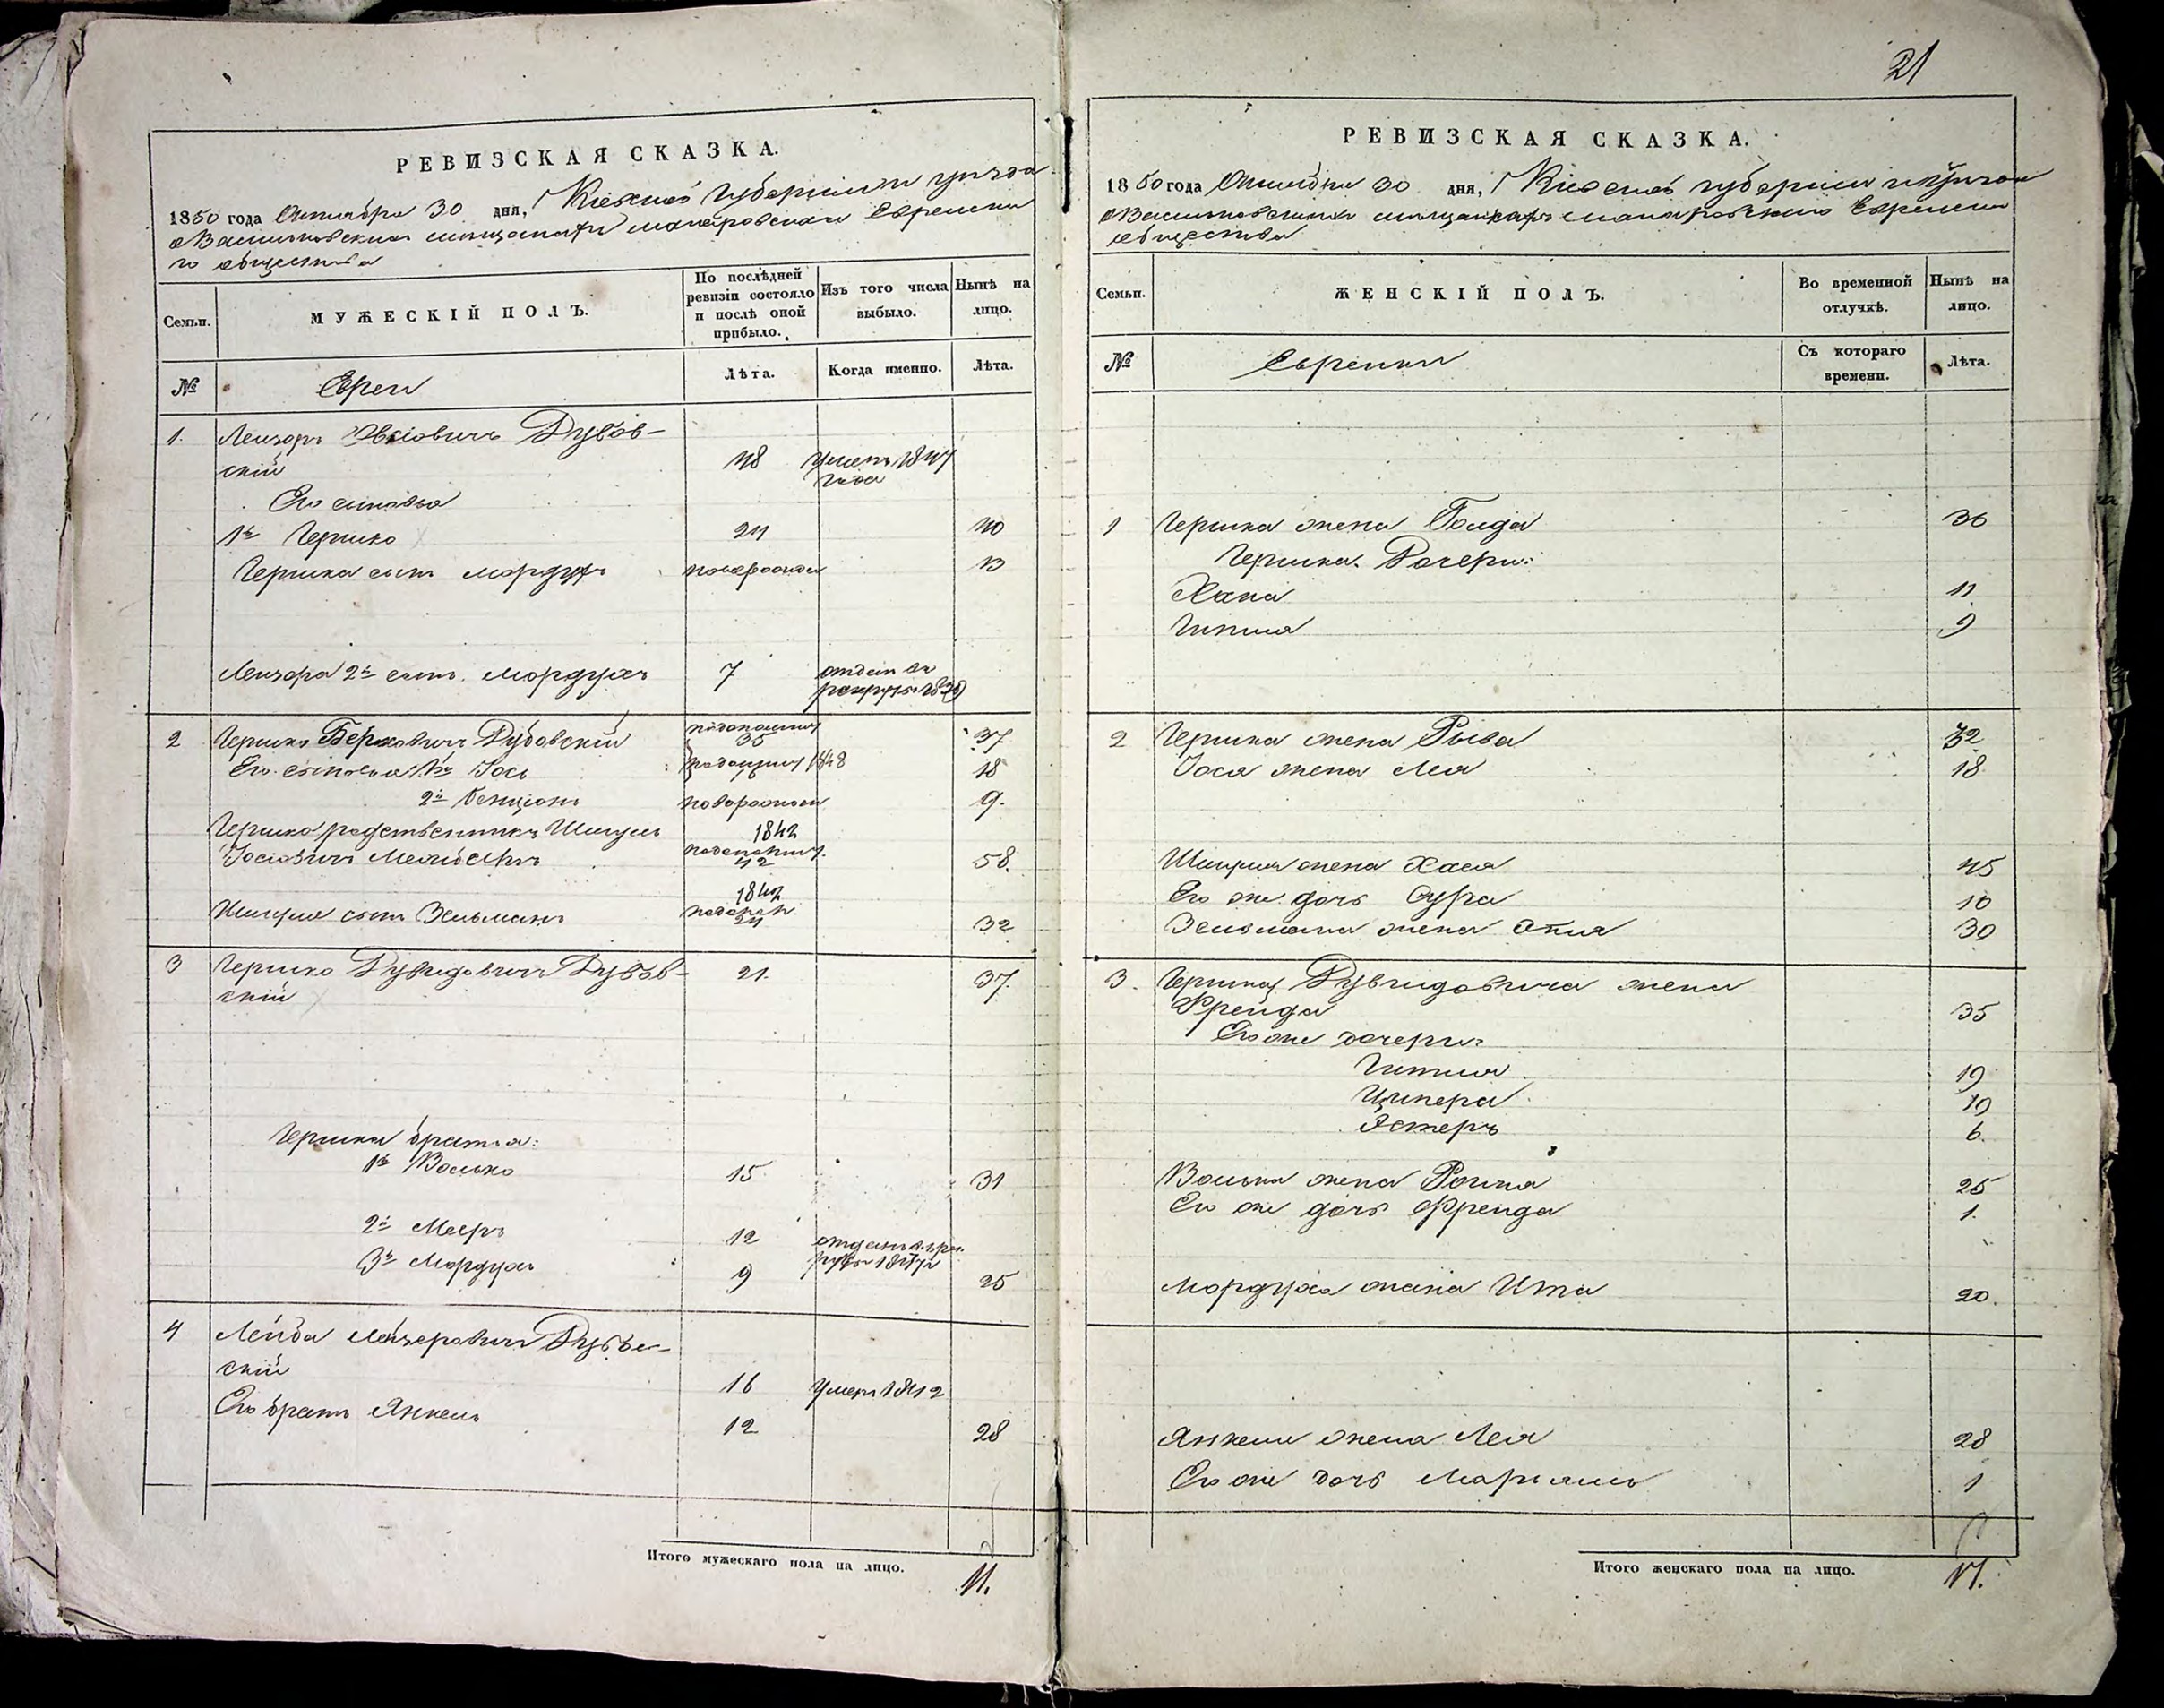 21
РЕВИЗСКАЯ СКАЗКА.
1850 года Октября 30 дня, Кіевской губерніи уезда
Васильковскаго мещанахъ макаровскаго Еврейска
го общества
Семьи.
МУЖЕСКІЙ ПОЛЪ.
По послѣдней ревизіи состояло и послѣ оной прибыло.
Изъ того числа выбыло.
Нынѣ на лицо.
№
Евреи
Лѣта.
Когда именно.
Лѣта.
1. Лейзоръ Іосіовичъ Дубов-
скій 48 умеръ 1847
года
Его сыновья
1й Гершко 24 40
Гершка сынъ Мордухъ новорожден 13
Лейзора 2й сынъ Мордухъ 7 отдан въ
рекруты 1839
2 Гершко Берковичъ Дубовскій 35 37
Его сыновья 1й Іось 1848 18
2й Бенціонъ новорожден 9.
Гершка родственникъ Шмуль 1842
Іосіовичъ 42 58.
1842
Шмуля сынъ Зельманъ 24 32
3 Гершко Дувидовичъ Дубов- 21. 37.
скій
Гершки братья:
1й Волько 15 31
2й Мееръ 12 отданъ в рек
руты 1847
3й Мордухъ 9 25
4 Лейба Лейзеровичъ Дубов-
скій 16 умеръ 1842
Его братъ Янкель 12 28
Итого мужескаго пола на лицо. 11.
РЕВИЗСКАЯ СКАЗКА.
1850 года Октября 30 дня, Кіевской губерніи уезда
Васильковскаго мещанахъ макаровскаго Еврейскаго
общества
Семьи.
ЖЕНСКІЙ ПОЛЪ.
Во временной отлучкѣ.
Нынѣ на лицо.
№
Еврейки
Съ котораго времени.
Лѣта.
1 Гершка жена Голда 36
Гершка Дочери:
Хана 11
Гитля 9
2 Гершка жена Рыва 32
Іося жена Лея 18
Шмуля жена Хая 45
Его же дочь Сура 16
Зельмана жена Этля 30
3. Гершка Дувидовича жена
Фрейда 35
Его же дочери:
Гитля 19
Ципера 10
Эстеръ 6.
Волька жена Рочля 25
Его же дочь Фрейда 1.
Мордуха жена Ита 20.
Янкеля жена Лея 28
Его же дочь Маріамъ 1
Итого женскаго пола на лицо. 17.